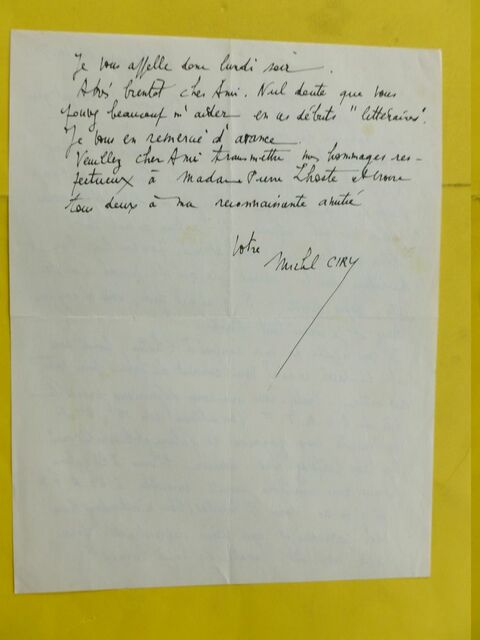 Je vous appelle donc lundi soir.
A très bientôt cher Ami. Nul doute que vous
pouvez beaucoup m'aider en ces débuts "littéraires".
Je vous en remercie d'avance.
Veuillez cher Ami transmettre mes hommages res-
pectueux à Madame Pierre Lhoste et croire
tous deux à ma reconnaissante amitié
Votre
Michel CIRY